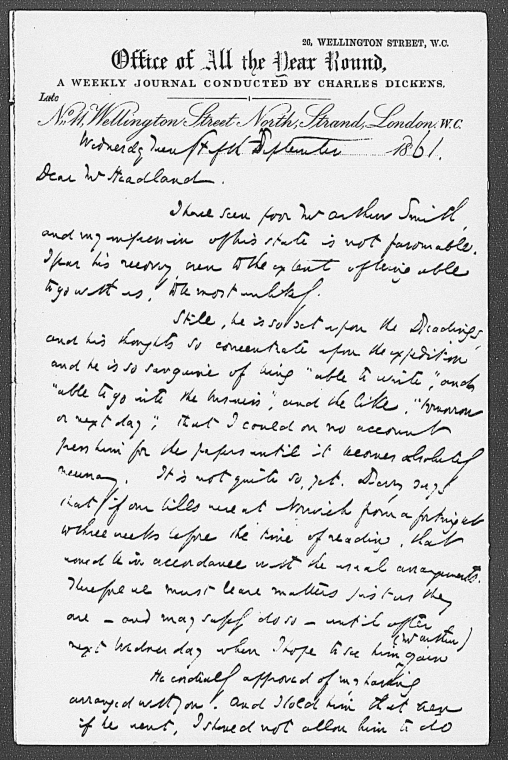 26, WELLINGTON STREET, W.C.
Office of All the Year Round,
A WEEKLY JOURNAL CONDUCTED BY CHARLES DICKENS.
Late
No. 11, Wellington Street North, Strand, London. W.C.
Wednesday Twenty Fifth September 1861.
Dear Mr Headland.
I have seen poor Mr Arthur Smith,
and my impression of his state is not favourable.
I fear his recovery, even to the extent of being able
to go with us, to be most unlikely.
Still, he is so set upon the Readings,
and his thoughts so concentrate upon the expedition
and he is so sanguine of being "able to write", and
"able to go into the business", and the like, "tomorrow
or next day"; that I could on no account
press him for the papers until it becomes absolutely
necessary. It is not quite so, yet. Derry says
that if our bills were at Norwich from a fortnight
to three weeks before the time of reading, that
would be in accordance with the usual arrangements.
Therefore we must leave matters just as they
are – and may safely do so – until after
next Wednesday when I hope to see him (Mr Arthur) again
He cordially approved of my having
arranged with you. And I told him that even
if he went, I should not allow him to do